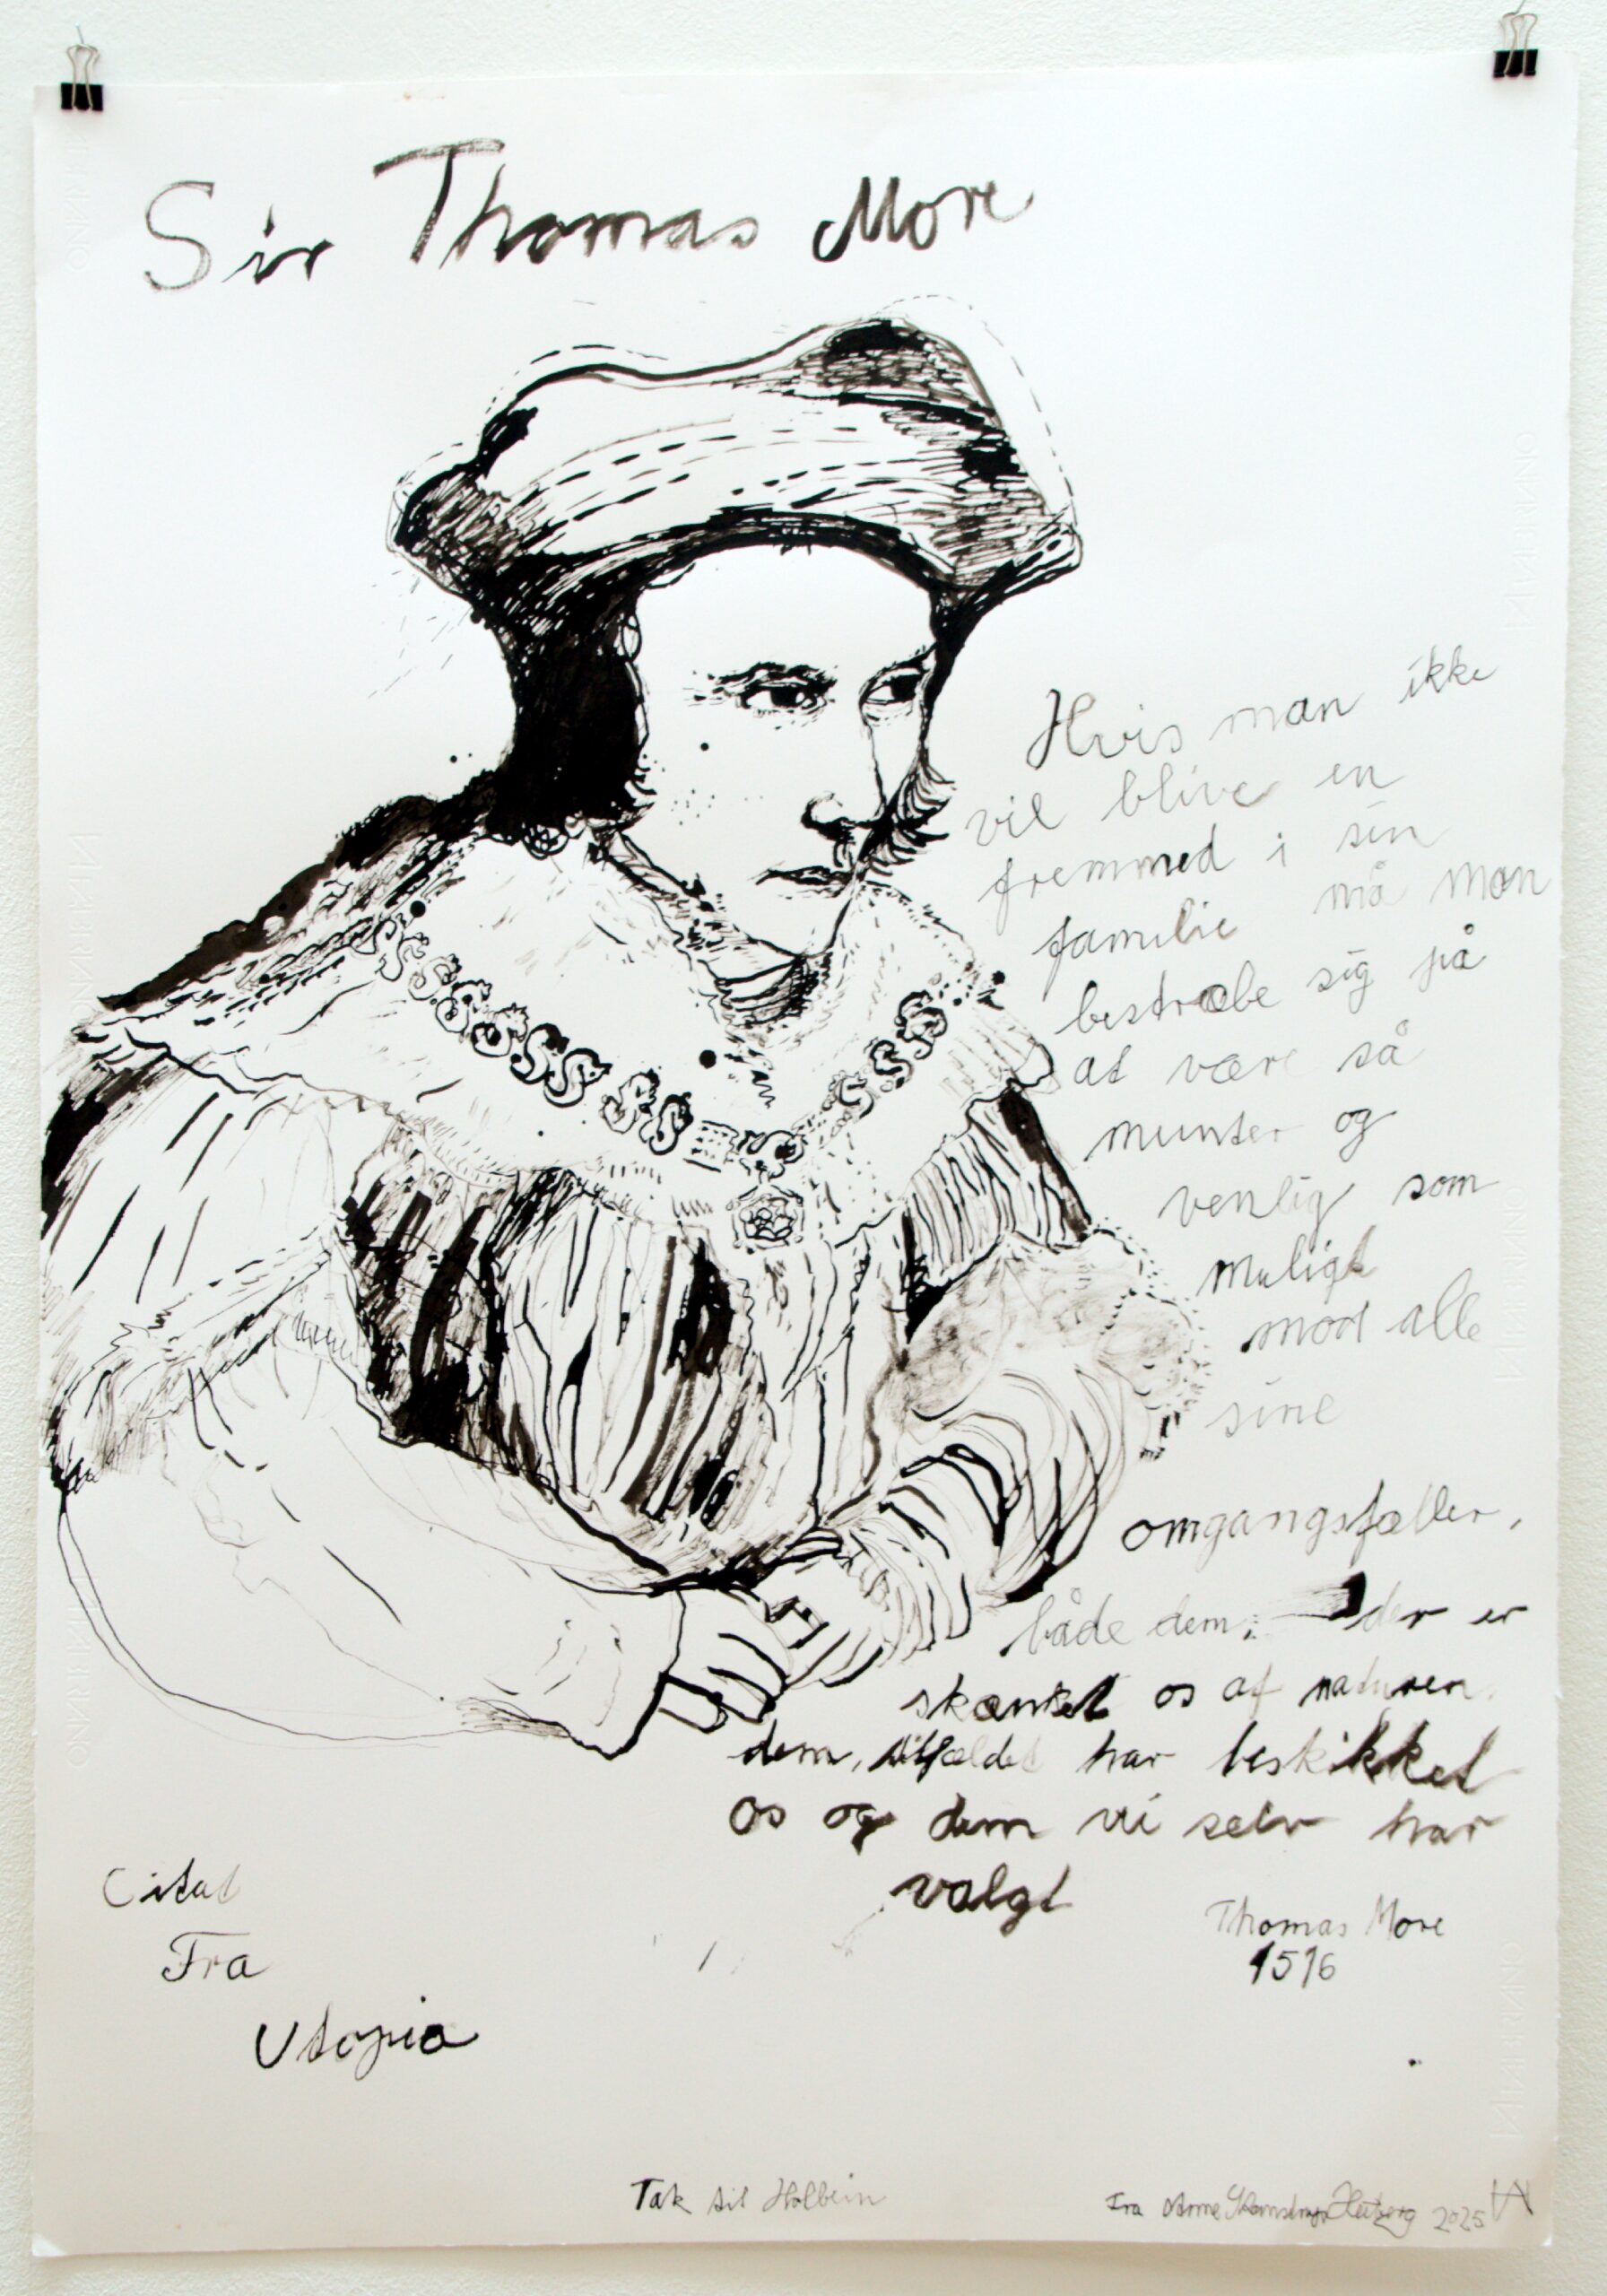 Sir Thomas More
Hvis man ikke
vil blive en
fremmed i sin
familie må man
bestræbe sig på
at være så
munter og
venlig som
muligt
mod alle
sine
omgangsfæller,
både dem, der er
skænket os af naturen
dem, tilfældet har beskikket
os og dem vi selv har
valgt
Thomas More
1516
Citat
Fra
Utopia
Tak til Holbein
Fra Anne Hertzberg 2025
FABRIANO